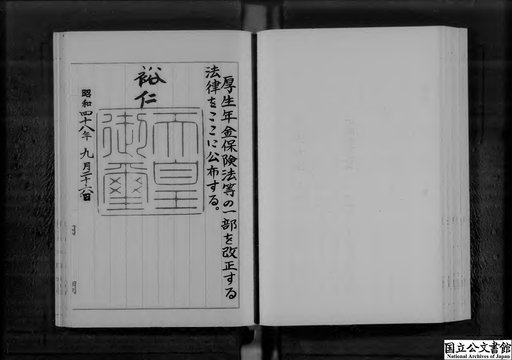 厚生年金保険法等の一部を改正する
法律をここに公布する。
裕仁
天皇
御璽
昭和四十八年九月二十六日
内閣
国立公文書館
National Archives of Japan